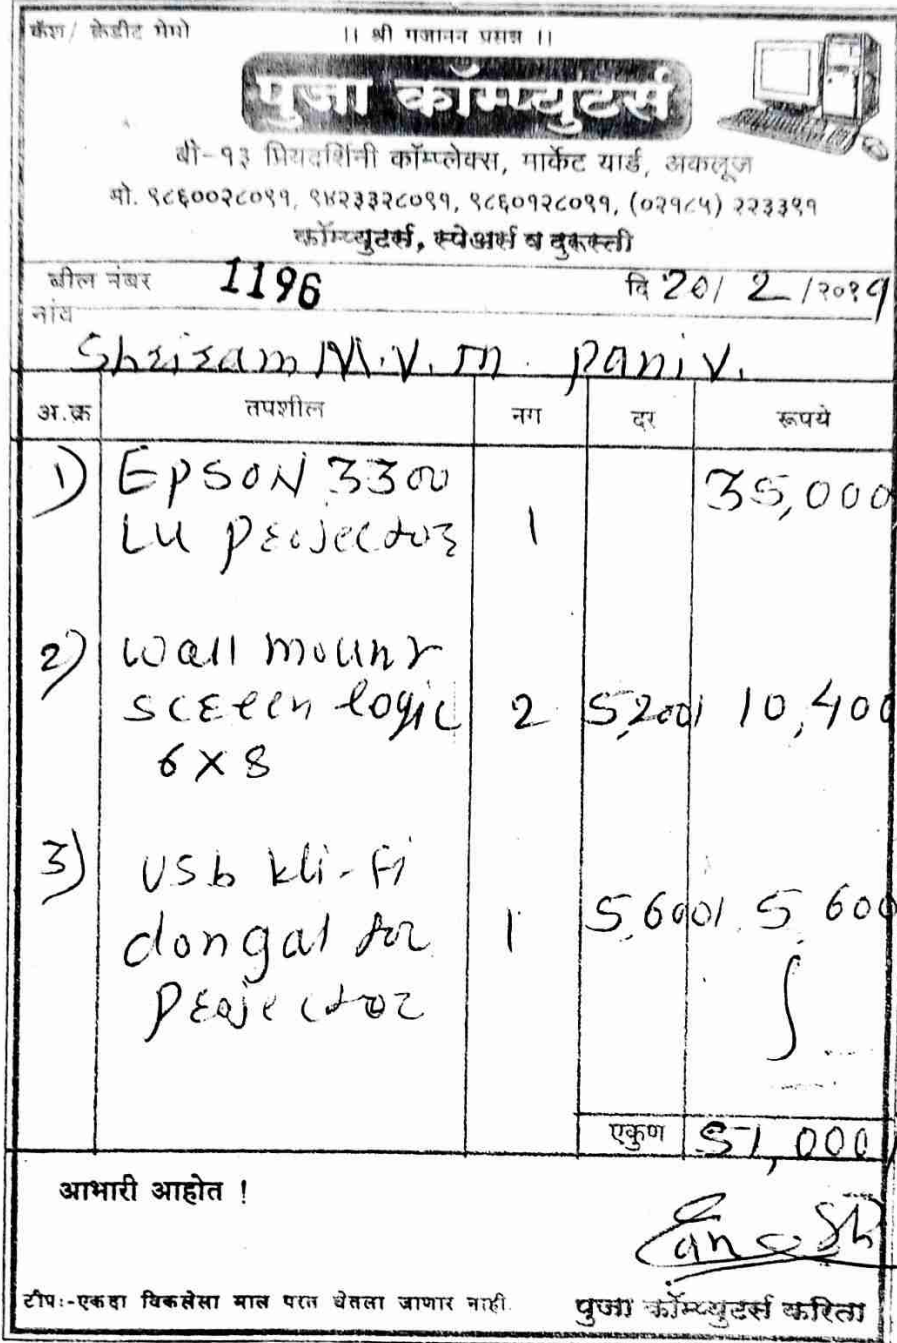 कॅश/ क्रेडीट मेमो
।। श्री गजानन प्रसन्न ।।
पुजा कॉम्प्युटर्स
बी-१३ प्रियदर्शिनी कॉम्प्लेक्स, मार्केट यार्ड, अकलूज
मो. ९८६००२८०९१, ९४२३३२८०९१, ९८६०१२८०९१, (०२१८५) २२३३९१
कॉम्प्युटर्स, स्पेअर्स व दुरूस्ती
बील नंबर 1196 दि 20/ 2 /२०१९
नांव
Shriram M.V.m. paniv.
अ.क्र तपशील नग दर रूपये
1) EPSON 3300 35,000
LU projector 1
2) wall mount
screen logic 2 5,200/ 10,400
6 X 8
3) USb Wi-fi
dongal for 1 5,600/ 5,600
projector
एकुण 51,000/
आभारी आहोत !
टीपः-एकदा विकलेला माल परत घेतला जाणार नाही.
पुजा कॉम्प्युटर्स करिता